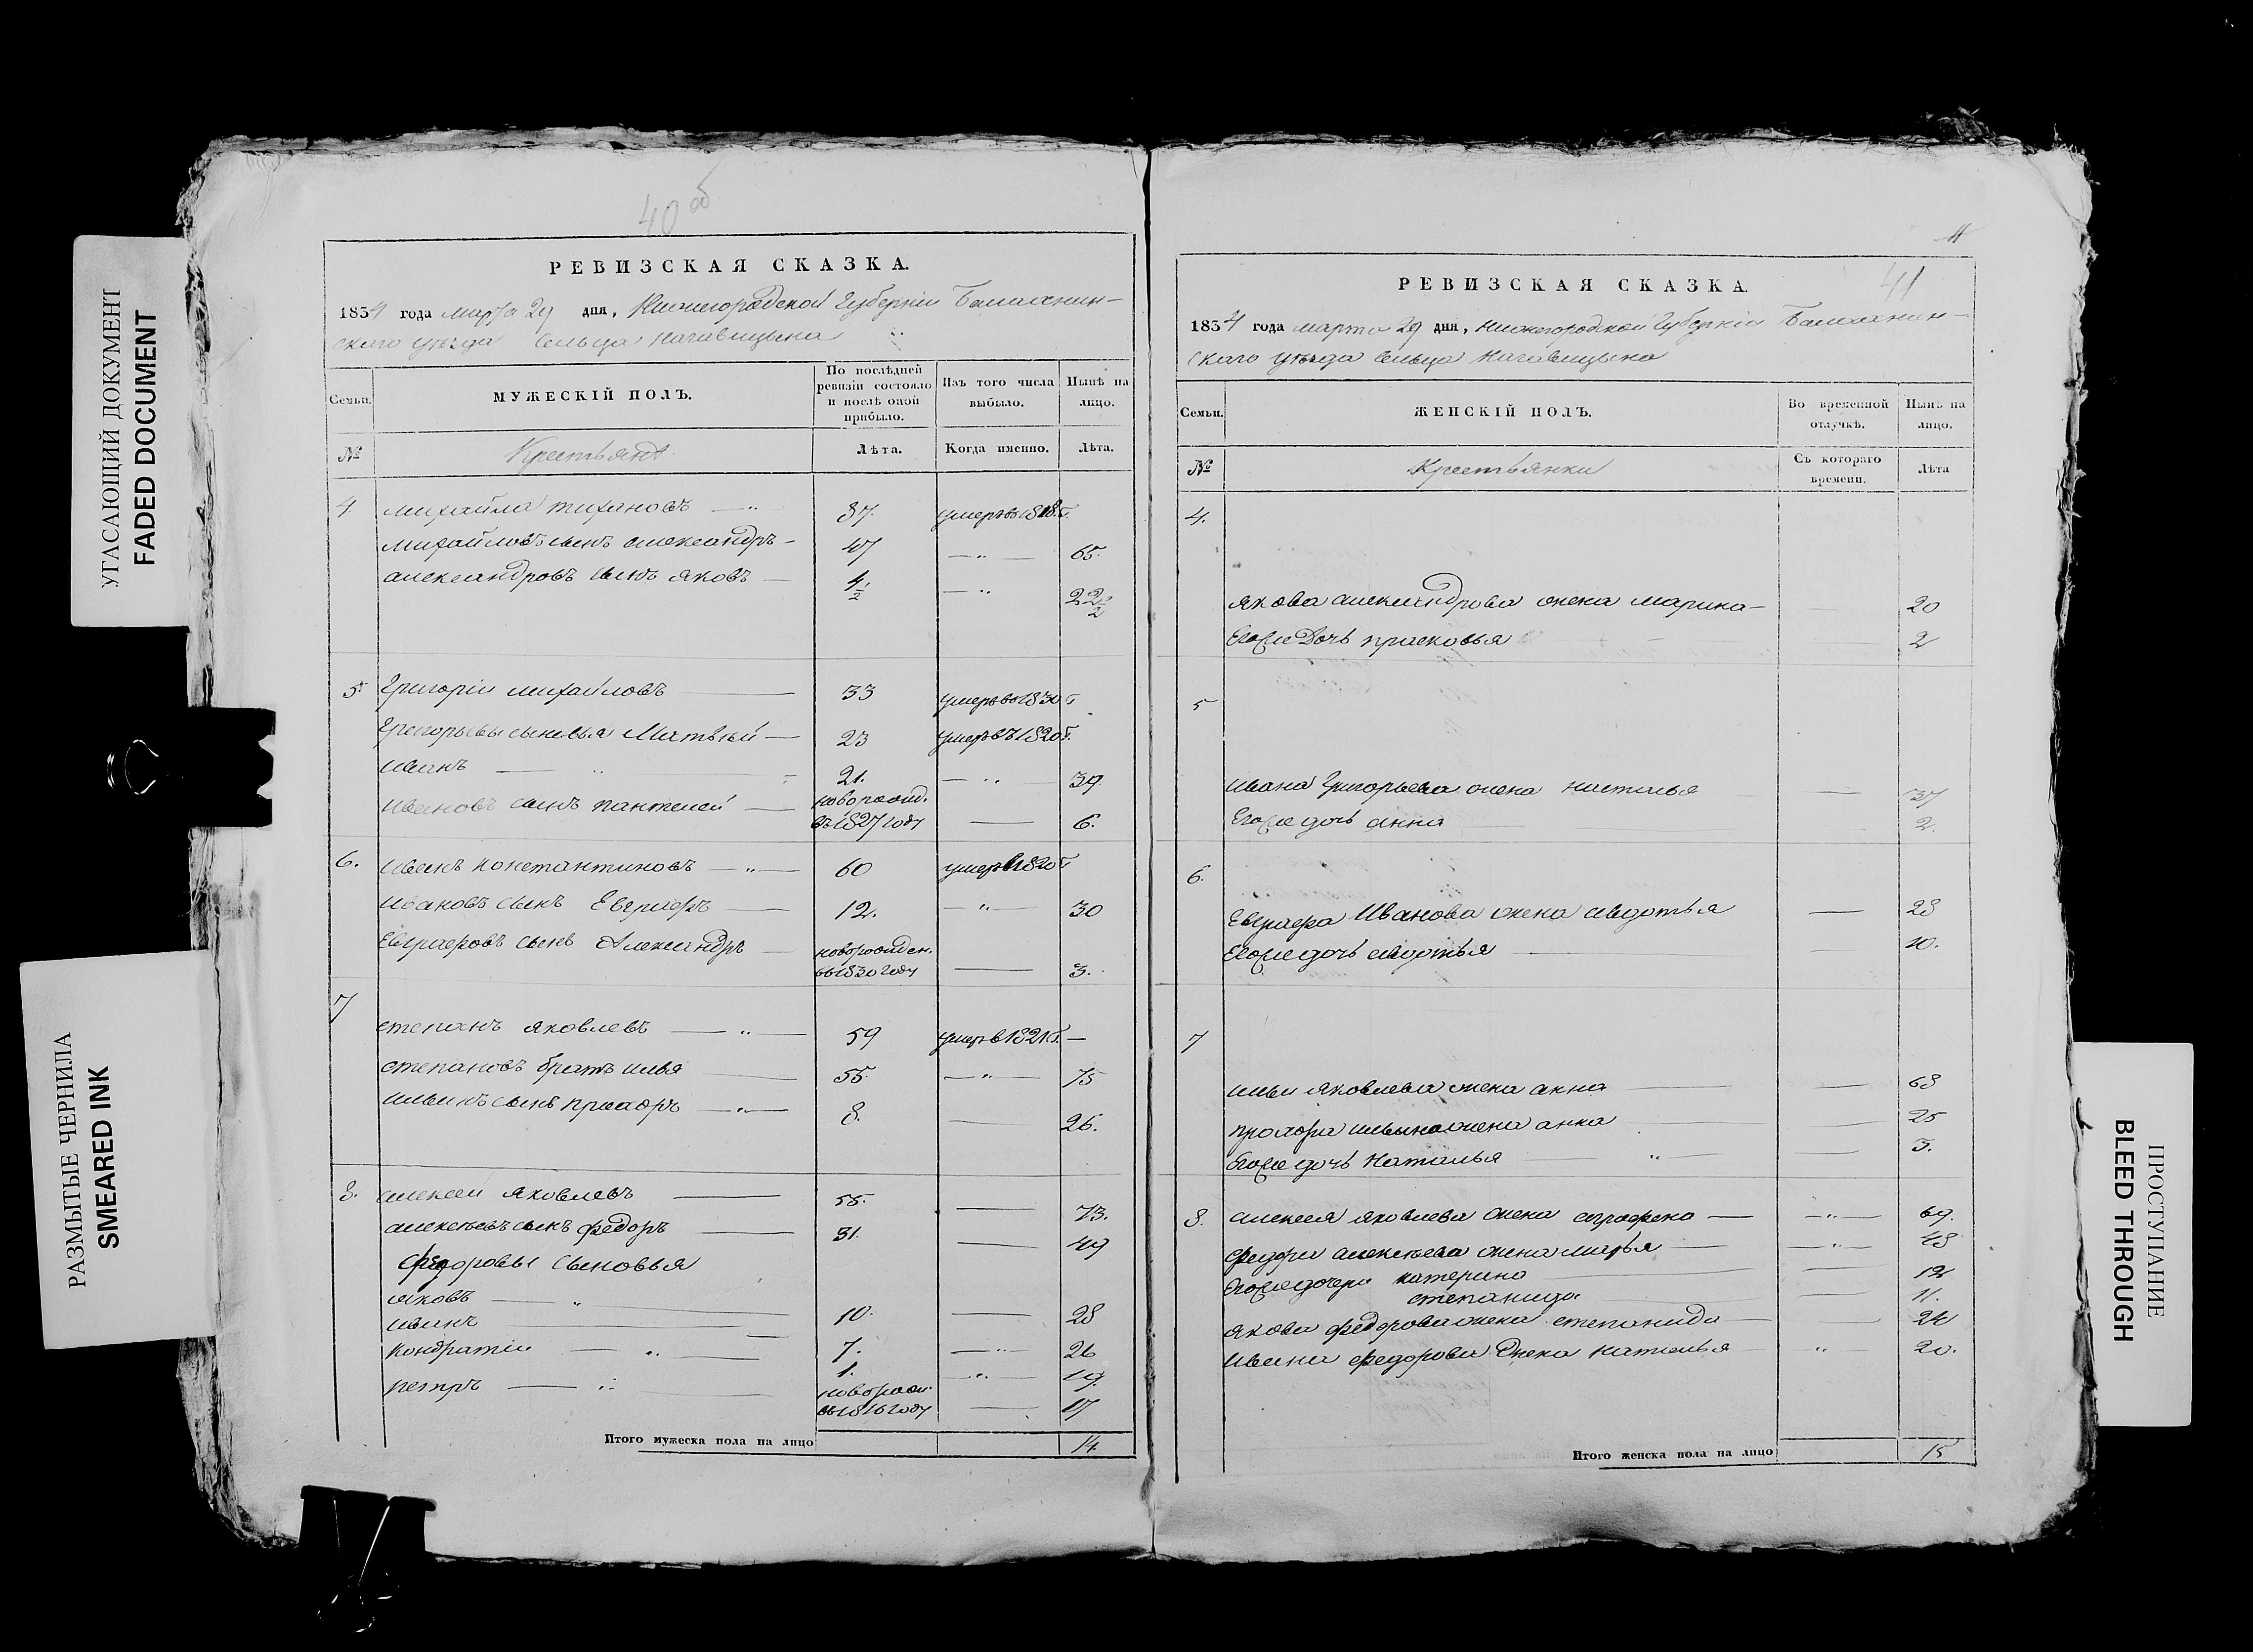 УГАСАЮЩИЙ ДОКУМЕНТ
FADED DOCUMENT
РАЗМЫТЫЕ ЧЕРНИЛА
SMEARED INK
40 об
РЕВИЗСКАЯ СКАЗКА.
1834 года марта 29 дня, Нижегородской Губерніи Балахнин-
скаго уѣзда Сельца Нагавицына
Семьи. МУЖЕСКІЙ ПОЛЪ. По послѣдней ревизіи состояло и послѣ оной прибыло. Изъ того числа выбыло. Нынѣ на лицо.
№ Крестьянѣ Лѣта. Когда именно. Лѣта.
4 михайла тихановъ — „ 87. умеръ въ 1818. г.
михайловъ сынъ александръ — 47 — „ — 65.
александровъ сынъ яковъ — 4 1/2 — „ 22 1/2
5. Григоріи михайловъ — 33 умеръ во 1830 г
Григорьевы сыновья Матвѣй — 23 умеръ въ 1820 г.
иванъ — „ 21. — „ — 39
ивановъ сынъ пантелей — новорожд. въ 1827 году — 6.
6. иванъ константиновъ — „ — 60 умеръ в 1820 г
ивановъ сынъ Евграфъ — 12. — „ — 30
Евграфовъ сынъ Александръ — новорожден. въ 1830 году — 3.
7 степанъ яковлевъ — „ — 59 умеръ в 1821 г. —
степановъ братъ илья — 55. — „ — 75
ильинъ сынъ прохоръ — „ — 8. — 26.
8. алексеи яковлевъ — 55. — 73.
алексѣевъ сынъ федоръ — 31. — 49
федоровы сыновья
яковъ — „ — 10. — 28
иванъ — 7. — „ — 26
кондратіи — „ — 1. — „ — 19.
петръ — „ — новорож. въ 1816 году — 17
Итого мужеска пола на лицо 14.
41
РЕВИЗСКАЯ СКАЗКА.
1834 года марта 29 дня, нижегородской Губерніи Балахнин-
скаго уѣзда Сельца Нагавицына
Семьи. ЖЕНСКІЙ ПОЛЪ. Во временной отлучкѣ. Нынѣ на лицо.
№ Крестьянки Съ котораго времени. Лѣта
4.
якова александрова жена марина — 20
Егоже дочь прасковья — 2
5
ивана Григорьева жена наталья — 37
Егоже дочь анна 2.
6.
Евграфа Иванова жена авдотья — 28
Егоже дочь авдотья — 10.
7
ильи яковлева жена анна — 68
прохора ильина жена анна — 25
Егоже дочь Наталья — „ — 3.
8. алексея яковлева жена аграфена — „ — 69.
федора алексѣева жена марья — „ — 48
Егоже дочери катерина — 12
степанида — 11.
якова федорова жена степанида — 24
ивана федорова жена наталья „ — 20.
Итого женска пола на лицо 15
ПРОСТУПАНИЕ
BLEED THROUGH